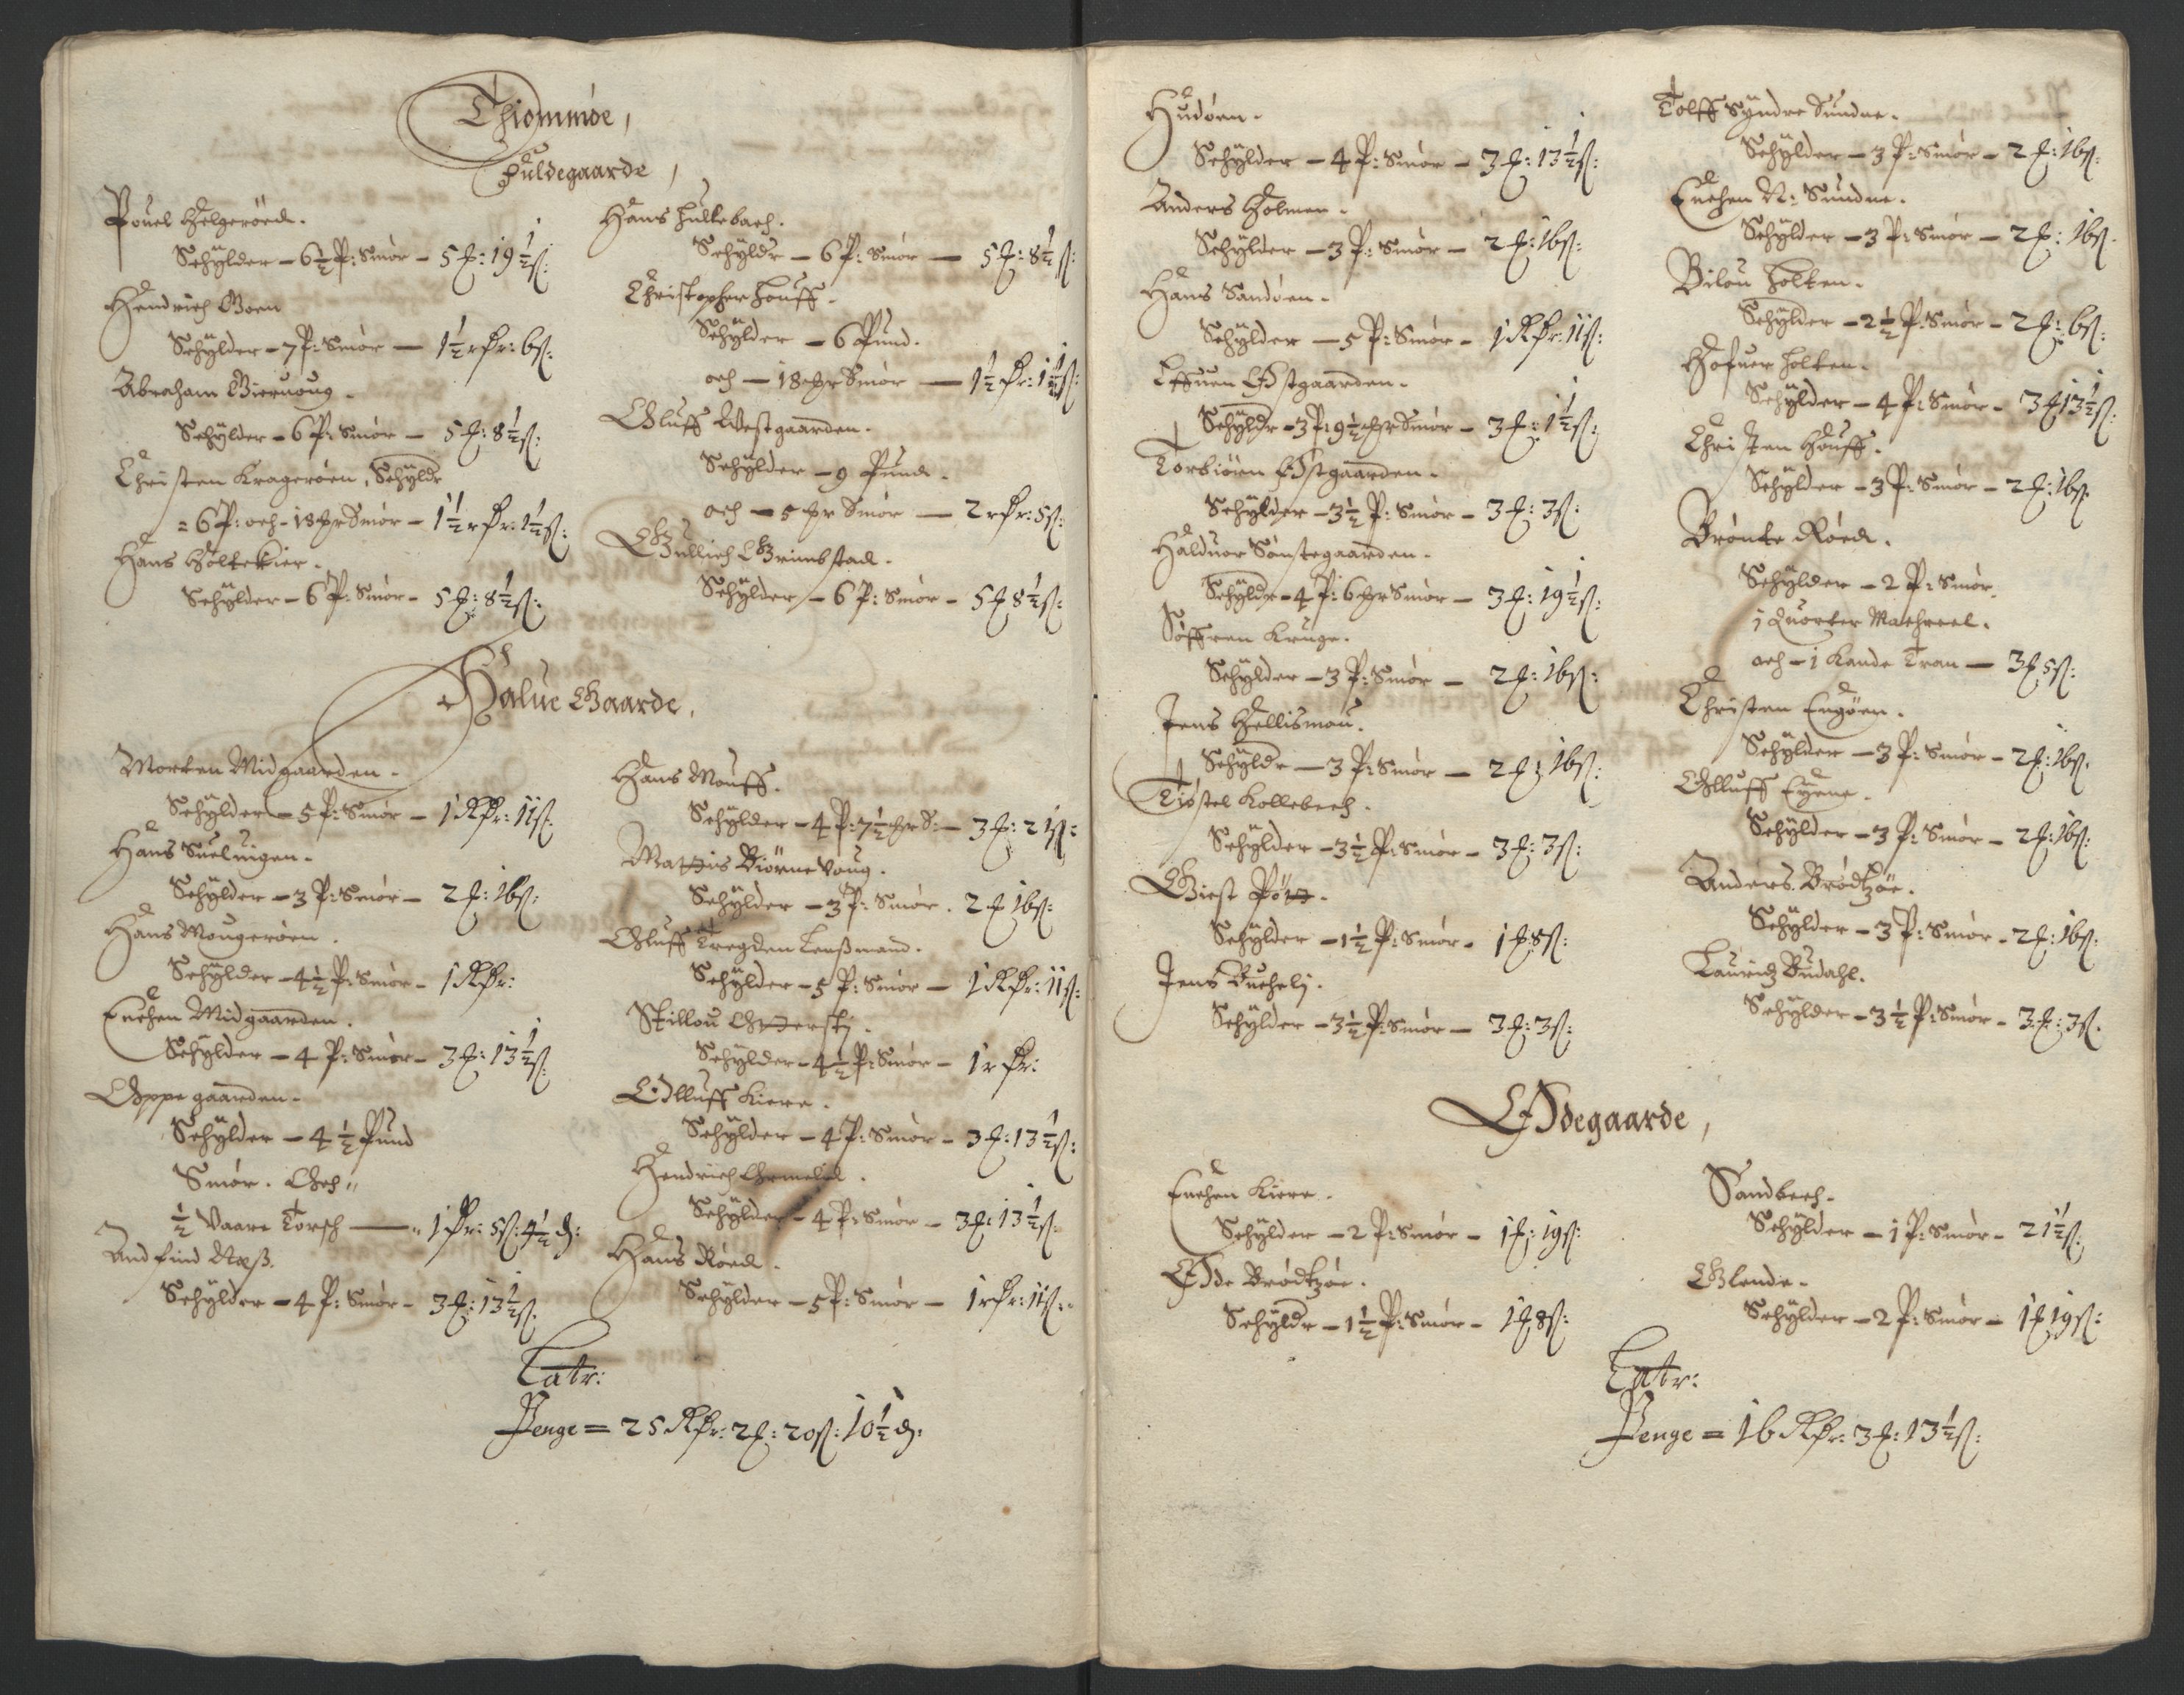 Thiommøe,
Fuldegaarde,
Pouel Helgerøed.
Schÿlder – 6½ P: Smør – 5 ℔: 19½ ß:
Hendrich Boen
Schÿlder – 7 P: Smør – 1½ rdr: 6 ß:
Abraham Bieruoug.
Schÿlder – 6 P: Smør – 5 ℔: 8½ ß:
Christen Kragerøen, Schÿldr
= 6 P: och – 18 mrk Smør – 1½ rdr: 1½ ß:
Hans Holtekier.
Schÿlder – 6 P: Smør – 5 ℔: 8½ ß:
Hans Fulkebach.
Schÿldr – 6 P: Smør – 5 ℔: 8½ ß:
Christopher Houff.
Schÿlder – 6 Pund.
och – 18 mrk Smør – 1½ dr: 1½ ß:
Oluff Westgaarden.
Schÿlder – 9 Pund.
och – 5 mrk Smør – 2 rdr: 5 ß:
Gullich Grimbstad.
Schÿlder – 6 P: Smør – 5 ℔ 8½ ß:
Halue Gaarde,
Morten Midgaarden.
Schÿlder – 5 P: Smør – 1 Rdr: 11 ß.
Hans Suelugen.
Schÿlder – 3 P: Smør – 2 ℔: 16 ß:
Hans Mougerøen.
Schÿlder – 4½ P: Smør – 1 Rdr:
Enchen Midgaarden.
Schÿlder – 4 P: Smør – 3 ℔: 13½ ß:
Oppegaarden.
Schÿlder – 4½ Pund
Smør. Och
½ Vaare Torsch – 1 dr: 5 ß: 4½ d:
Andfind Næß.
Schÿlder – 4 P: Smør – 3 ℔: 13½ ß:
Hans Mouff.
Schÿlder – 4 P: 7½ mrk S: – 3 ℔: 21 ß:
Mattis Biørneuoug.
Schÿlder – 3 P: Smør. 2 ℔ 16 ß:
Oluff Tregden Lenßmand.
Schÿlder – 5 P: Smør – 1 Rdr: 11 ß:
Stillou Otterstj.
Schÿlder – 4½ P: Smør – 1 rdr:
Olluff Kiere.
Schÿlder – 4 P: Smør – 3 ℔: 13½ ß:
Hendrich Ormelet.
Schÿlder – 4 P: Smør – 3 ℔: 13½ ß:
Hans Røed.
Schÿlder – 5 P: Smør – 1 rdr: 11 ß:
Latr:
Penge = 25 Rdr: 2 ℔: 20 ß: 10½ d:
Hudøen.
Schÿlder – 4 P: Smør – 3 ℔: 13½ ß:
Anders Holmen.
Schÿlder – 3 P: Smør – 2 ℔: 16 ß:
Hans Sandøen.
Schÿlder – 5 P: Smør – 1 Rdr: 11 ß:
Effuen Østgaarden.
Schÿldr – 3 P: 9½ mrk Smør – 3 ℔: 1½ ß:
Torbiøren Østgaarden.
Schÿlder – 3½ P: Smør – 3 ℔: 3 ß:
Halduor Sønstegaarden.
Schÿldr – 4 P: 6 mrk Smør – 3 ℔: 19½ ß:
Søffren Kruge.
Schÿlder – 3 P: Smør – 2 ℔: 16 ß:
Jens Hellismou.
Schÿldr – 3 P: Smør – 2 ℔: 16 ß:
Tiøstel Kollebech.
Schÿlder – 3½ P: Smør – 3 ℔: 3 ß:
Giest Pøtt.
Schÿlder – 1½ P: Smør – 1 ℔: 8 ß:
Jens Buchelj.
Schÿlder – 3½ P: Smør – 3 ℔: 3 ß:
Tolff Syndre Sundne.
Schÿlder – 3 P: Smør – 2 ℔: 16 ß:
Enchen N: Sundne.
Schÿlder – 3 P: Smør – 2 ℔: 16 ß.
Bilou Holken.
Schÿlder – 2½ P: Smør – 2 ℔: 6 ß:
Hofuer Holken.
Schÿlder – 4 P: Smør – 3 ℔ 13½ ß:
Christen Houff.
Schÿlder – 3 P: Smør – 2 ℔: 16 ß.
Brønte Røed.
Schÿlder – 2 P: Smør,
1 Quorter Machreel.
och – 1 Kande Tran – 3 ℔ 5 ß:
Christen Engøen.
Schÿlder – 3 P: Smør – 2 ℔: 16 ß.
Olluff Eÿene.
Schÿlder – 3 P: Smør – 2 ℔: 16 ß:
Anders Brødtzøe.
Schÿlder – 3 P: Smør – 2 ℔: 16 ß:
Lauridz Budahl.
Schÿlder – 3½ P: Smør – 3 ℔: 3 ß.
Ødegaarde,
Enchen Kiere.
Schÿlder – 2 P: Smør – 1 ℔: 19 ß:
Øde Brødtzøe.
Schÿldr – 1½ P: Smør – 1 ℔ 8 ß:
Sandbech.
Schÿlder – 1 P: Smør – 21½ ß:
Glende.
Schÿlder – 2 P: Smør – 1 ℔ 19 ß:
Latr:
Penge = 16 Rdr: 3 ℔: 13½ ß: